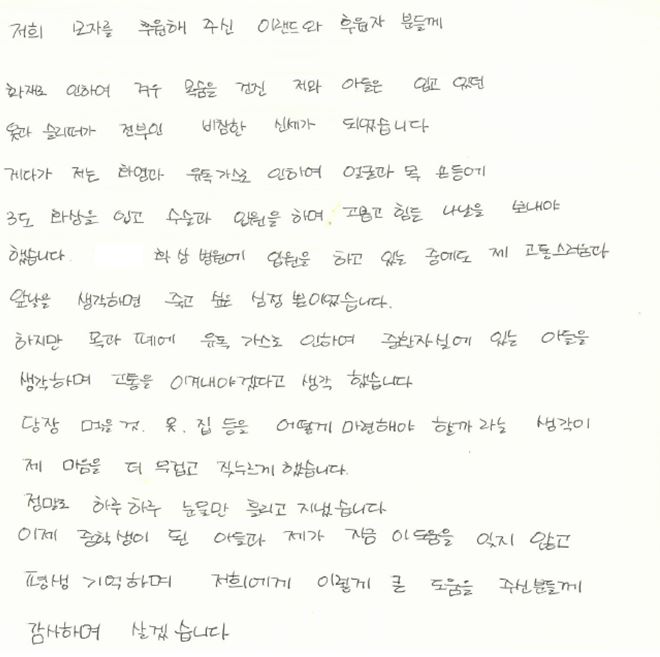 저희 모자를 후원해 주신 이랜드와 후원자 분들께
화재로 인하여 겨우 목숨을 건진 저와 아들은 입고 있던
옷과 슬리퍼가 전부인 비참한 신세가 되었습니다
게다가 저는 화염과 유독가스로 인하여 얼굴과 목 손등에
3도 화상을 입고 수술과 입원을 하며 고통고 힘든 나날을 보내야
했습니다. 화상병원에 입원을 하고 있는 중에도 제 고통스러움과
앞날을 생각하면 죽고 싶은 심정 뿐이었습니다.
하지만 목과 폐에 유독 가스로 인하여 중환자실에 있는 아들을
생각하며 고통을 이겨내야겠다고 생각 했습니다
당장 먹을것. 옷. 집 등을 어떻게 마련해야 할까 라는 생각이
제 마음을 더 무겁고 짓누르게 했습니다.
정말로 하루하루 눈물만 흘리고 지냈습니다
이제 중학생이 된 아들과 제가 지금 이도움을 잊지 않고
평생 기억하며 저희에게 이렇게 큰 도움을 주신분들께
감사하며 살겠습니다